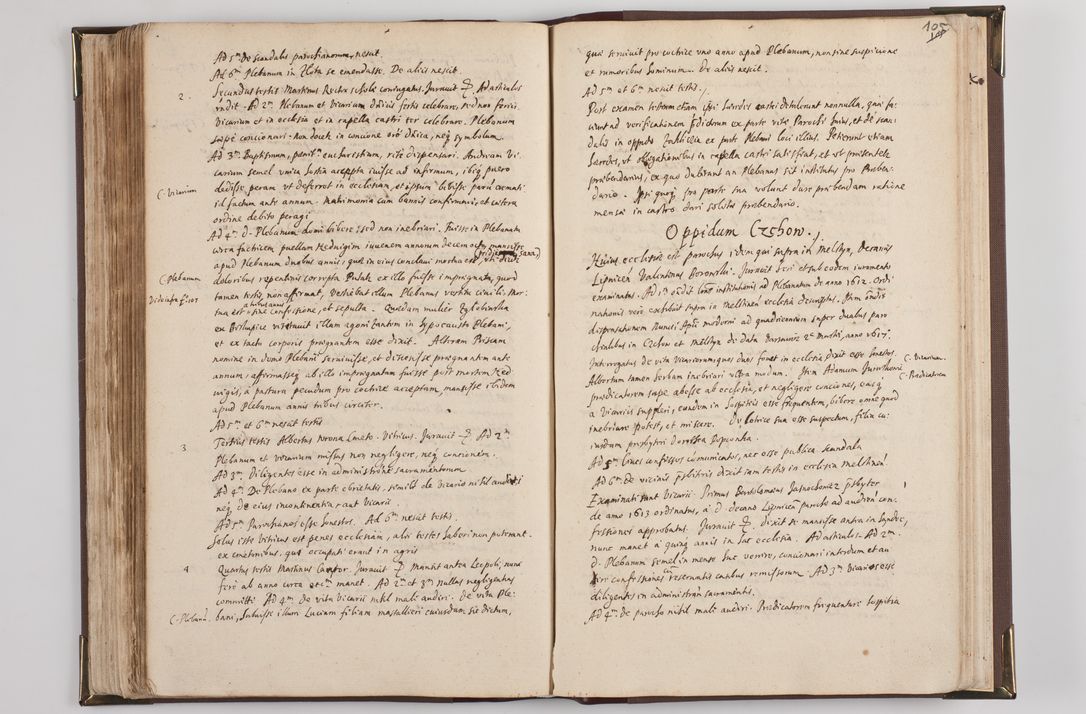 Ad 5m de scandalis parochianorum, nescit.
Ad 6m Plebanum in Zlota se emendasse. De aliis nescit.
2. Secundus testis Martinus Rector scholae coniugatus. Juravit Ad articulos
rndit. Ad 2m Plebanum et Vicarium dnicis festis celebrare, sed non feriis.
Vicarium et in ecclesia et in capella castri ter celebrare. Plebanum
saepe concionari. Non docet in concione orõ Dnica, neq symbolum.
Ad 3m Baptismum, paenitm eucharestiam, rite dispensari. Andream Vi-
C. Vicarium
carium semel vna Justin accepta iuisse ad infirmum, ibiq puero
dedisse peram vt deferret in ecclesiam, et ipsum bibisse
id factum ante annum. Matrimonia cum bannis confirmari, et caetera
ordine debito peragi
Ad 4m D. Plebanum domi bibere sed non inebriari. Fuisse in Plebanatu
circa factricem puellam Hedvigim iuuenem annorum decem octo, mansisse
C. Plebanum
apud Plebanum duobus annis, quae in eius conclavi mortua est
Vide infra f. 105
doloribus repentinis correpta. Putat ex illo fuisse impregnata, quod
tamen testis, non affirmat, vestiebat illam Plebanus vestitu civili. Mor-
tua est sine confessione, et sepulta. Quedam mulier Zglobiwska
ex Biskupice illam agonizantem in hypocausto Plebani,
et ex tactu corporis pregnantem esse dixit. Alteram
nomine in domo Plebani seruiuisse, et discessisse praegnantem ante
annum, affirmasseq ab illo impregnatam fuisse post mortem Hed-
uigis, à pastura pecudum pro coctrice acceptam, mansisse ibidem
apud Plebanum annis tribus circiter.
Ad 5m et 6m nescit testis
3. Tertius testis Albertus Wrona Cmeto. Vitricus. Juravit Ad 2m
Plebanum et vicarium missas non negligere, neq concionem.
Ad 3m Diligentes esse in administrone sacramentorum
Ad 4m De Plebano ex parte ebrietatis, semilr de vicario nihil audivi
neq de eius incontinentia, aut vicarii
Ad 5m Parochianos esse honestos. Ad 6m nescit testis.
Solus iste Vitricus est penes ecclesiam, alii testes haberi non poterant
ex cmetonibus, qui occupati erant in agris
4. Quartus testis Martinus Cantor. Juravit Mansit antea Leopoli, nunc
fere ab anno circa etcm manet. Ad 2m et 3m nullas negligentias
committi. Ad 4m de vita Vicarii nihil mali audiri. De vita Ple-
C. Plebanum
bani, habuisse illum Luciam filiam mastallieri cuiusdam, sic dictum,
105
quae seruiuit pro coctrice vno anno apud Plebanum, non sine suspicione
et rumoribus hominum. De aliis nescit.
Ad 5m et 6m nescit testis.
Post examen testium etiam ipsi haeredes castri detulerunt nonnulla, quae fa-
ciunt ad verificationem pdictorum ex parte vitae Parochi huius, et de scan-
dalis in oppido Jublicia ex parte Plebani loci illius. Petierunt etiam
haeredes, vt obligationibus in capella castri satisfiat, et vt praesentet
praebendarius, ex quo dubitant an Plebanus sit institutus pro Praeben-
dario. Ipsi quoq pro parte sua volunt dare praebendam ratione
mensae in castro dari solitae praebendario.
Oppidum Czchow.
Huius ecclesiae est parochus idem qui supra in Melstyn, Decanus
Lipnicen Valentinus Boronski. Juravit ibi et sub eodem iuramento
examinatus. Ad 1m ondit lras institutionis ad Plebanatum de anno 1612. Ordi
nationis vero exhibuit supra in Melstinen ecclesia descriptas. Item ondit
dispensationem Nuncii Aplici moderni ad quadriennium super duabus paro
chialibus in Czchow et Melstyn de data Varsaviae 2a Martii, anno 1617.
Interrogatus de vita Vicariorum, quos duos fouet in ecclesia dixit esse honestos.
C. Vicarium.
Albertum tamen Serbam inebriari vltra modum. Item Adamum
C. Predicatorem
praedicatorem saepe abesse ab ecclesia, et negligere conciones, easq
à Vicariis suppleri, eundem in hospitiis esse frequentem, bibere omne quod
inebriare potest, et miscere. De lotrice sua esse suspectum, filia cu-
iusdam presbyteri Dorothea Popionka.
Ad 5m Omnes confessos communicatos, nec esse publica scandala
Ad 6m de vicinis pbitris dixit iam testis in ecclesia Melstinen
Examinati sunt Vicarii. Primus Bartolomeus Jasnochowicz pbyter
de anno 1613 ordinatus, à D. decano Lipnicen parocho ad audien con-
fessiones approbatus. Juravit dixit se mansisse antea in Sandec,
nunc manet à quinq annis in hac ecclesia. Ad articulos. Ad 2m.
D. Plebanum semel in mense huc venire, concionari interdum et au
dire confessiones cu reseruatis casibus remissorum. Ad 3m Vicarios esse
diligentes in administran sacramentis.
Ad 4m de parocho nihil mali audiri. Predicatorem frequentare hospitia